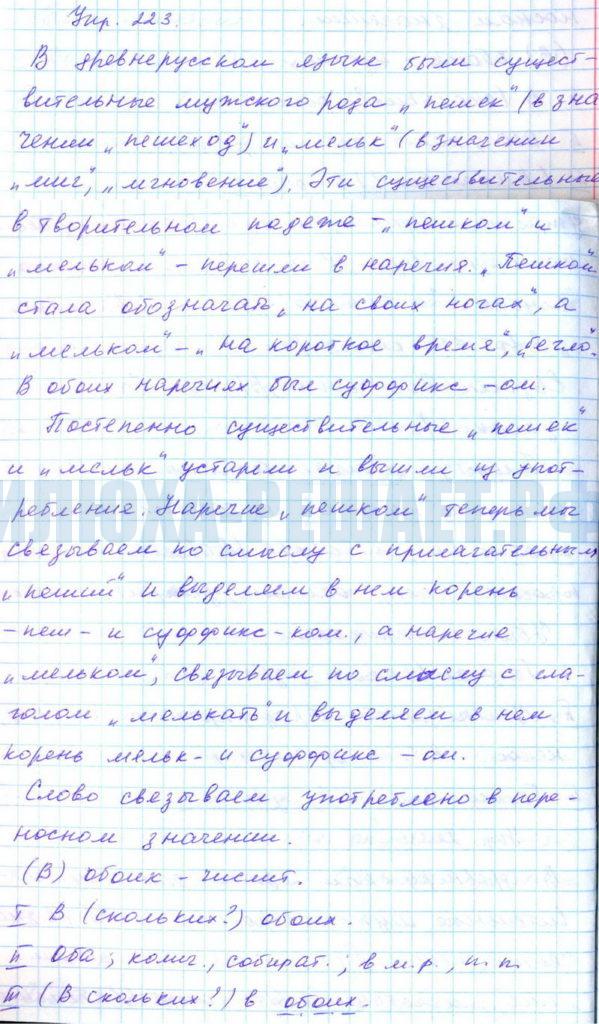 Упр. 223.
В древнерусском языке были сущест-
вительные мужского рода „пешек" (в зна
чении „пешеход") и „мельк" (в значении
„миг", „мгновение"). Эти существительные
в творительном падеже - „пешком" и
„мельком" - перешли в наречия. „Пешком"
стала обозначать „на своих ногах", а
„мельком" - „на короткое время", „бегло".
В обоих наречиях был суффикс -ом.
Постепенно существительные „пешек"
и „мельк" устарели и вышли из упот-
ребление. Наречие „пешком" теперь мы
связываем по смыслу с прилагательным
„пеший" и выделяем в нем корень
-пеш- и суффикс -ком., а наречие
„мельком", связываем по смыслу с гла-
голом „мелькать" и выделяем в нем
корень мельк- и суффикс -ом.
Слово связываем употреблено в пере-
носном значении.
(В) обоих - числит.
I В (скольких?) обоих.
II Оба; колич., собират.; в м.р., п. п.
III (В скольких?) в обоих.